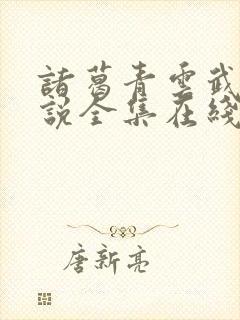 諸葛青雲武
說全集在綫
唐新亮